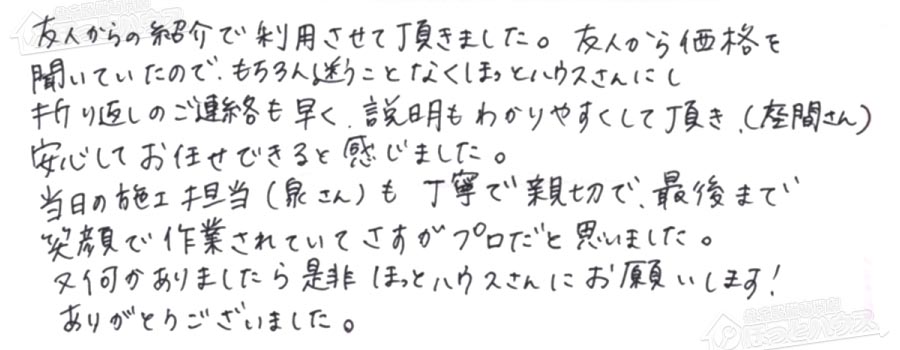 友人からの紹介で利用させて頂きました。友人から価格を
聞いていたので、もちろん迷うことなくほっとハウスさんにし
折り返しのご連絡も早く、説明もわかりやすくして頂き、(座間さん)
安心してお任せできると感じました。
当日の施工担当(泉さん)も丁寧で親切で、最後まで
笑顔で作業されていてさすがプロだと思いました。
又何かありましたら是非ほっとハウスさんにお願いします!
ありがとうございました。
ほっとハウス